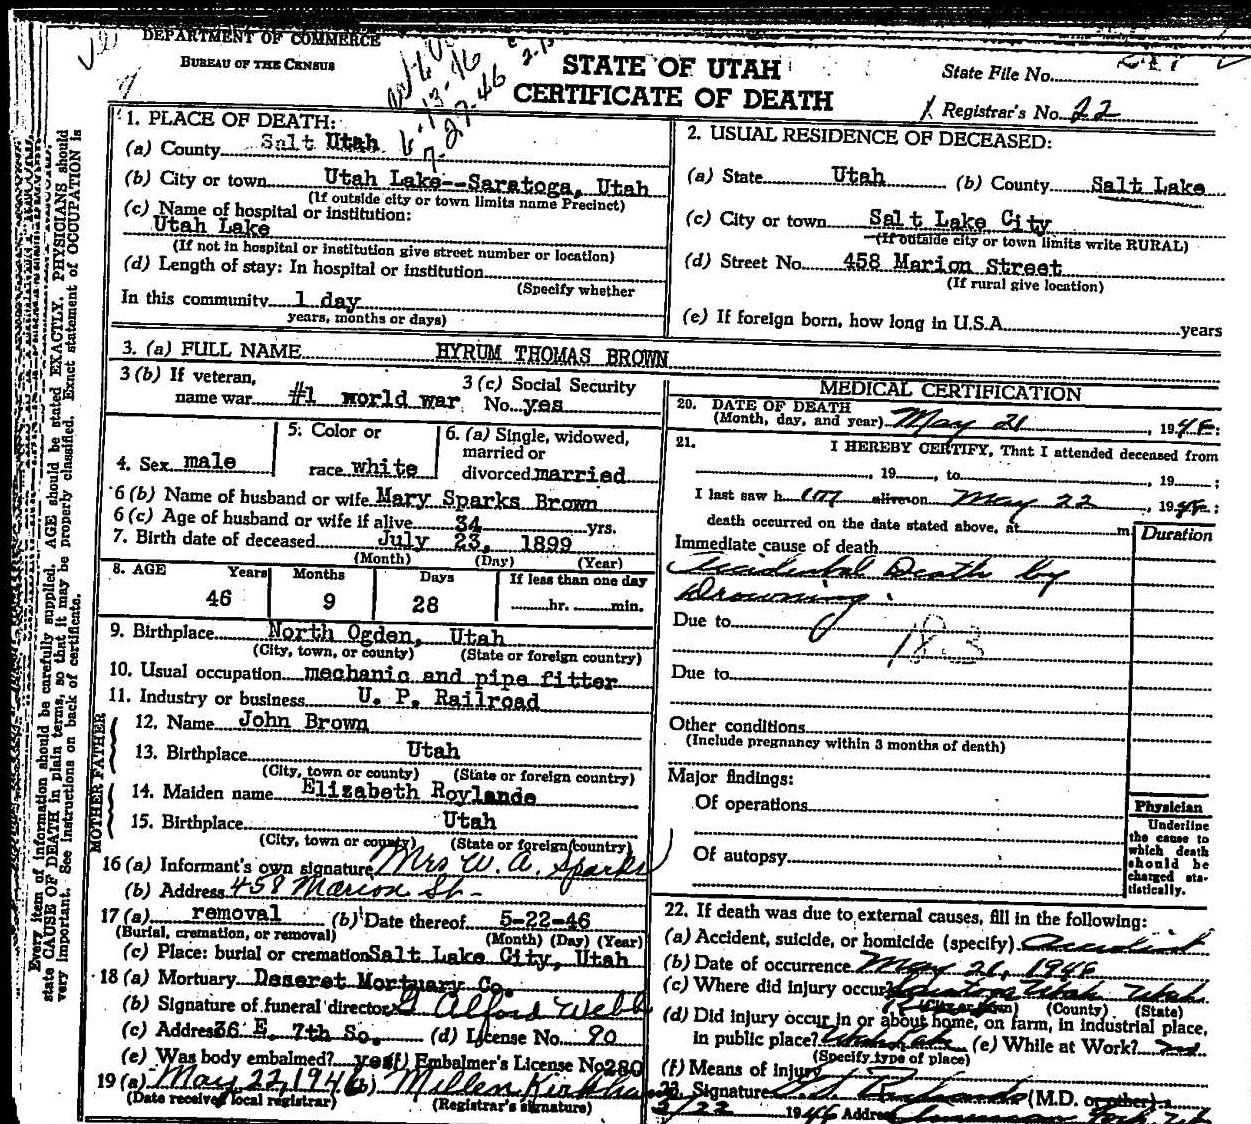 DEPARTMENT OF COMMERCE
BUREAU OF THE CENSUS
STATE OF UTAH
CERTIFICATE OF DEATH
State File No.
Registrar's No. 22
1. PLACE OF DEATH:
(a) County Salt Utah
(b) City or town Utah Lake--Saratoga, Utah
(If outside city or town limits name Precinct)
(c) Name of hospital or institution:
Utah Lake
(If not in hospital or institution give street number or location)
(d) Length of stay: In hospital or institution
(Specify whether
In this community 1 day
years, months or days)
2. USUAL RESIDENCE OF DECEASED:
(a) State Utah (b) County Salt Lake
(c) City or town Salt Lake City
(If outside city or town limits write RURAL)
(d) Street No. 458 Marion Street
(If rural give location)
(e) If foreign born, how long in U.S.A. years
3. (a) FULL NAME HYRUM THOMAS BROWN
3 (b) If veteran,
name war #1 world war
3 (c) Social Security
No. yes
4. Sex male
5. Color or
race white
6. (a) Single, widowed,
married or
divorced married
6 (b) Name of husband or wife Mary Sparks Brown
6 (c) Age of husband or wife if alive 34 yrs.
7. Birth date of deceased July 23, 1899
(Month) (Day) (Year)
8. AGE Years Months Days If less than one day
46 9 28 hr. min.
9. Birthplace North Ogden, Utah
(City, town, or county) (State or foreign country)
10. Usual occupation mechanic and pipe fitter
11. Industry or business U. P. Railroad
FATHER
12. Name John Brown
13. Birthplace Utah
(City, town or county) (State or foreign country)
MOTHER
14. Maiden name Elizabeth Roylande
15. Birthplace Utah
(City, town or county) (State or foreign country)
16 (a) Informant's own signature Mrs W. A. Sparks
(b) Address 458 Marion St.
17 (a) removal (b) Date thereof 5-22-46
(Burial, cremation, or removal) (Month) (Day) (Year)
(c) Place: burial or cremation Salt Lake City, Utah
18 (a) Mortuary Deseret Mortuary Co.
(b) Signature of funeral director G Alford Webb
(c) Address 36 E. 7th So. (d) License No. 90
(e) Was body embalmed? yes (f) Embalmer's License No 280
19 (a) May 22, 1946 (b) Millen Kirkham
(Date received local registrar) (Registrar's signature)
MEDICAL CERTIFICATION
20. DATE OF DEATH
(Month, day, and year) May 21, 1946:
21. I HEREBY CERTIFY, That I attended deceased from
, 19 , to , 19 ;
I last saw h im alive on May 22, 1946;
death occurred on the date stated above, at m
Duration
Immediate cause of death
Accidental Death by
Drowning.
Due to
183
Due to
Other conditions
(Include pregnancy within 3 months of death)
Major findings:
Of operations
Of autopsy
Physician
Underline
the cause to
which death
should be
charged sta-
tistically.
22. If death was due to external causes, fill in the following:
(a) Accident, suicide, or homicide (specify) Accident
(b) Date of occurrence May 21, 1946
(c) Where did injury occur? Saratoga Utah Utah
(City or town) (County) (State)
(d) Did injury occur in or about home, on farm, in industrial place,
in public place? Utah Lake (e) While at Work? no
(Specify type of place)
(f) Means of injury
23. Signature (M.D. or other)
5/22 1946 Address American Fork, Ut
Every item of information should be carefully supplied. AGE should be stated EXACTLY. PHYSICIANS should
state CAUSE OF DEATH in plain terms, so that it may be properly classified. Exact statement of OCCUPATION is
very important. See instructions on back of certificate.